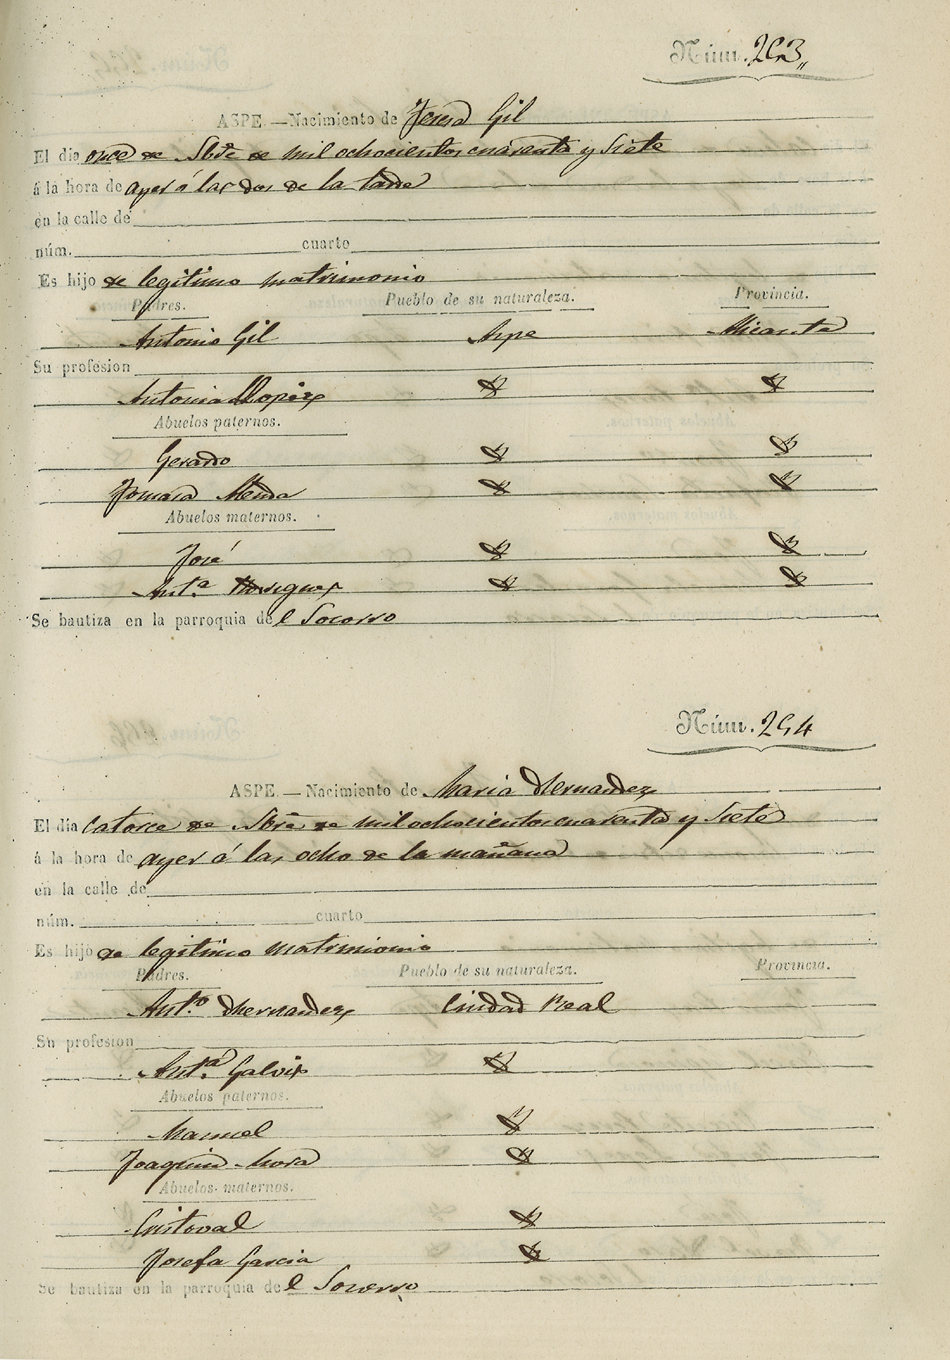 Núm. 253,,
ASPE.—Nacimiento de Teresa Gil
El dia once de Sbre de mil ochocientos cuarenta y Siete
á la hora de ayer á las dos de la tarde
en la calle de
núm. cuarto
Es hijo de legitimo matrimonio
Padres. Pueblo de su naturaleza. Provincia.
Antonio Gil Aspe Alicante
Su profesion
Antonia Llopiz
Abuelos paternos.
Gerardo
Tomasa Mexia
Abuelos maternos.
José
Ant.ª
Se bautiza en la parroquia del Socorro
Núm. 254
ASPE.—Nacimiento de Maria Hernandez
El dia catorce de Sbre de mil ochocientos cuarenta y Siete
á la hora de ayer á las ocho de la mañana
en la calle de
núm. cuarto
Es hijo de legitimo matrimonio
Padres. Pueblo de su naturaleza. Provincia.
Ant.º Hernandez Ciudad Real
Su profesion
Ant.ª Galvix
Abuelos paternos.
Manuel
Joaquina Mora
Abuelos maternos.
Cristoval
Josefa Garcia
Se bautiza en la parroquia del Socorro